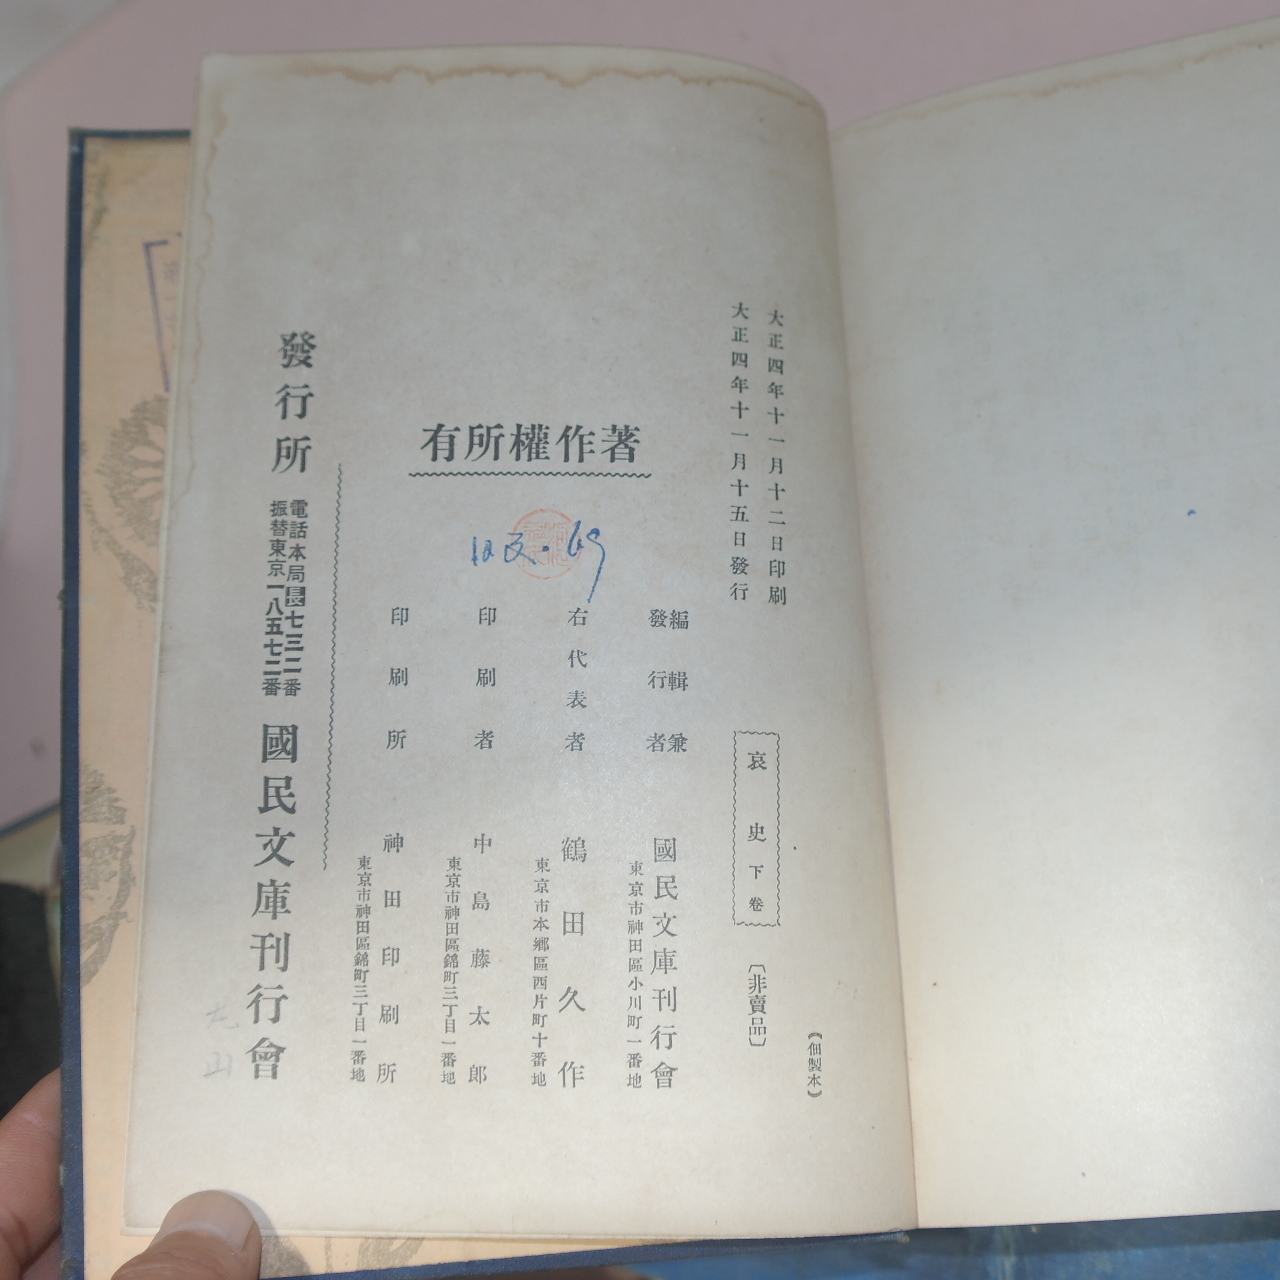 大正四年十一月十二日印刷
大正四年十一月十五日發行
哀史下卷
〔非賣品〕
（佃製本）
著作權所有
編輯兼
發行者
國民文庫刊行會
東京市神田區小川町一番地
右代表者
鶴田久作
東京市本鄕區西片町十番地
印刷者
中島藤太郎
東京市神田區錦町三丁目一番地
印刷所
神田印刷所
東京市神田區錦町三丁目一番地
發行所
電話本局長七三二番
振替東京一八五七二番
國民文庫刊行會